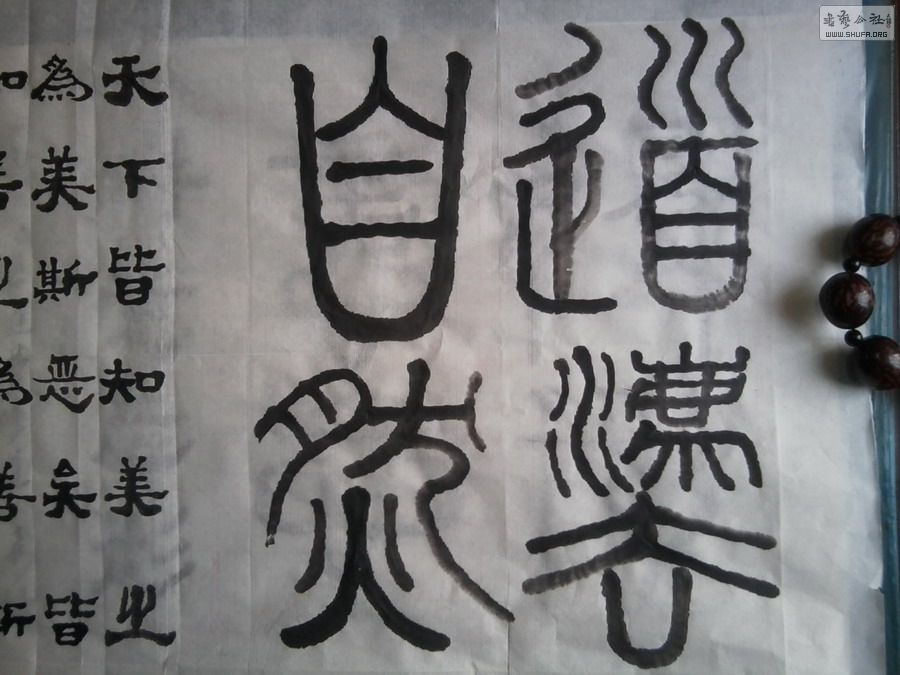 道灋
自然
天下皆知美之
為美斯恶矣皆
知善之為善斯
書藝公社
WWW.SHUFA.ORG